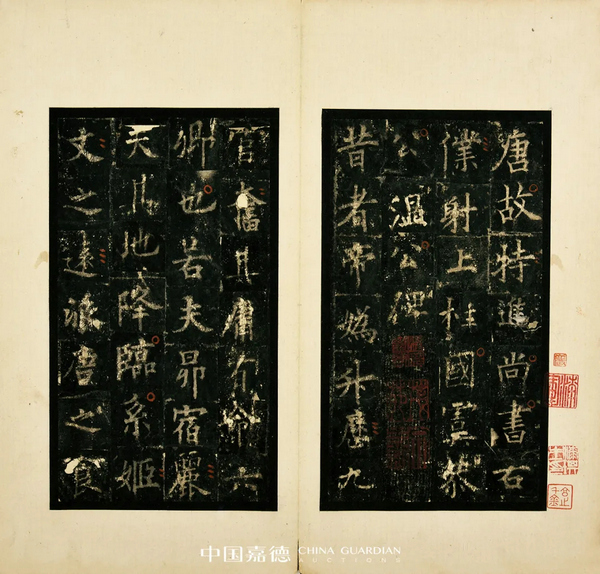 唐故特進尚書右
僕射上柱國虞恭
公溫公碑
昔者帝媯升歷九
官奮其庸有命六
卿也若夫昴宿麗
天地降臨系姬
文之遠派唐之食
中国嘉德 CHINA GUARDIAN
AUCTIONS